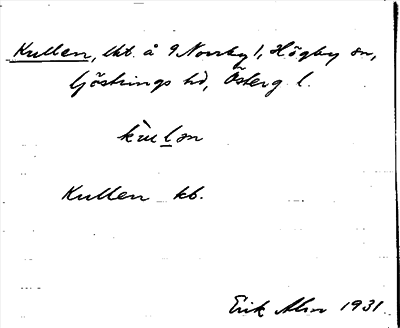 Kullen, lht. å 9 Norrby 1, Högby sn,
Göstrings hd, Österg l.
kùlən
Kullen kb.
Erik Alm 1931